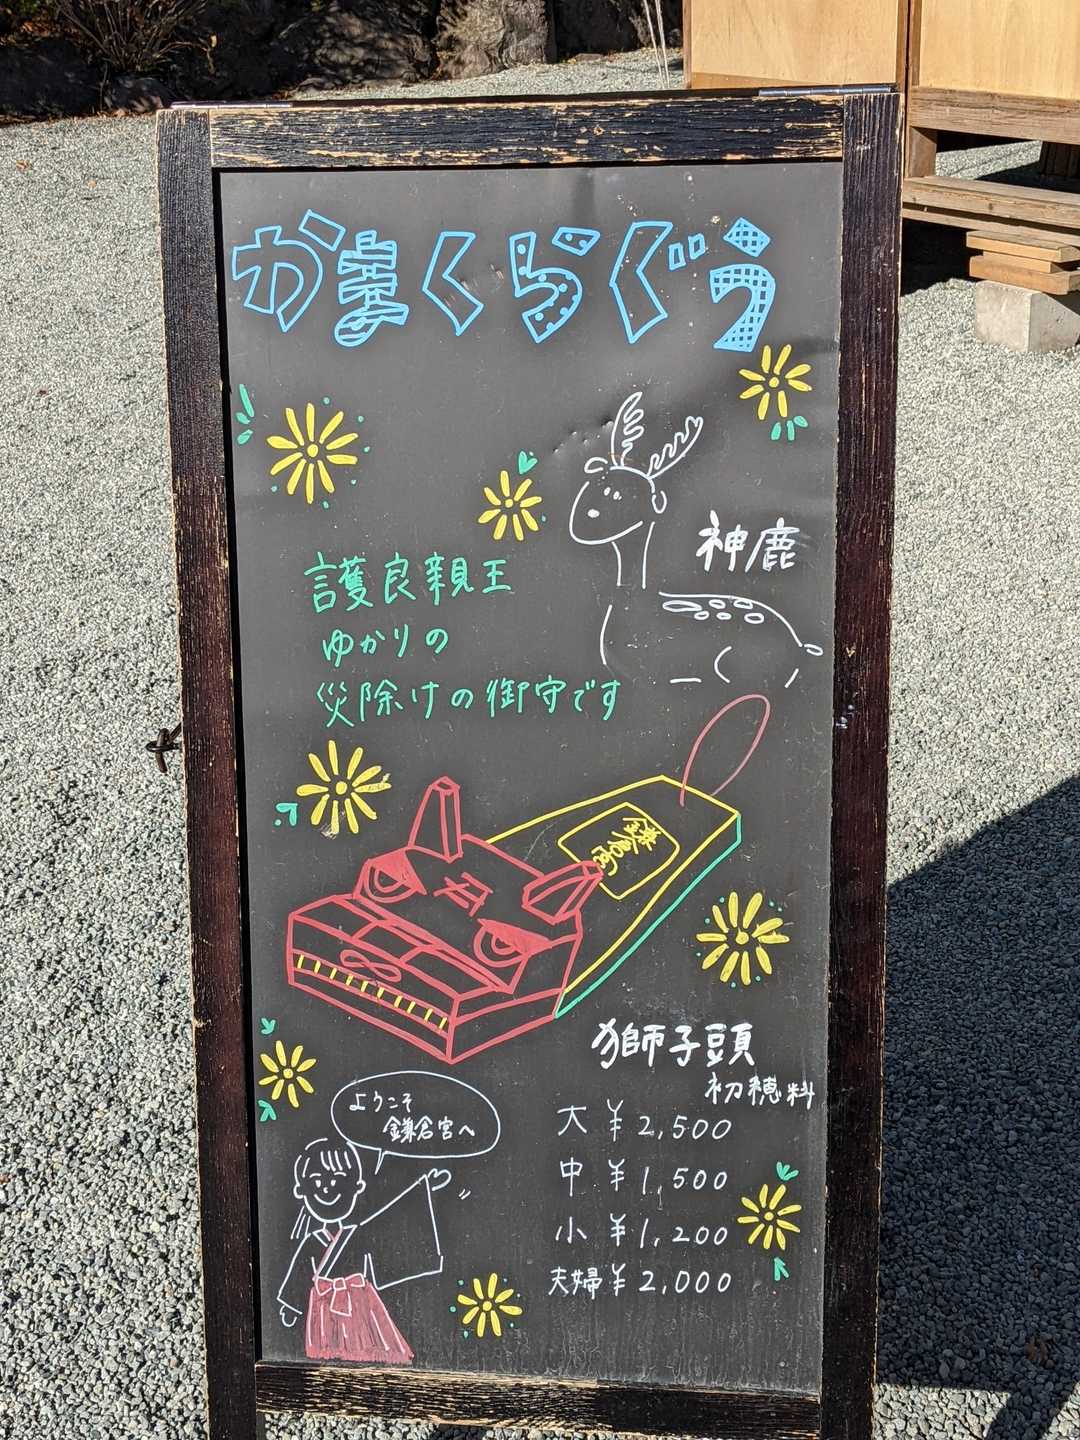 かまくらぐう
神鹿
護良親王
ゆかりの
災除けの御守です
鎌倉宮
獅子頭
初穂料
大 ¥2,500
中 ¥1,500
小 ¥1,200
夫婦 ¥2,000
ようこそ
鎌倉宮へ